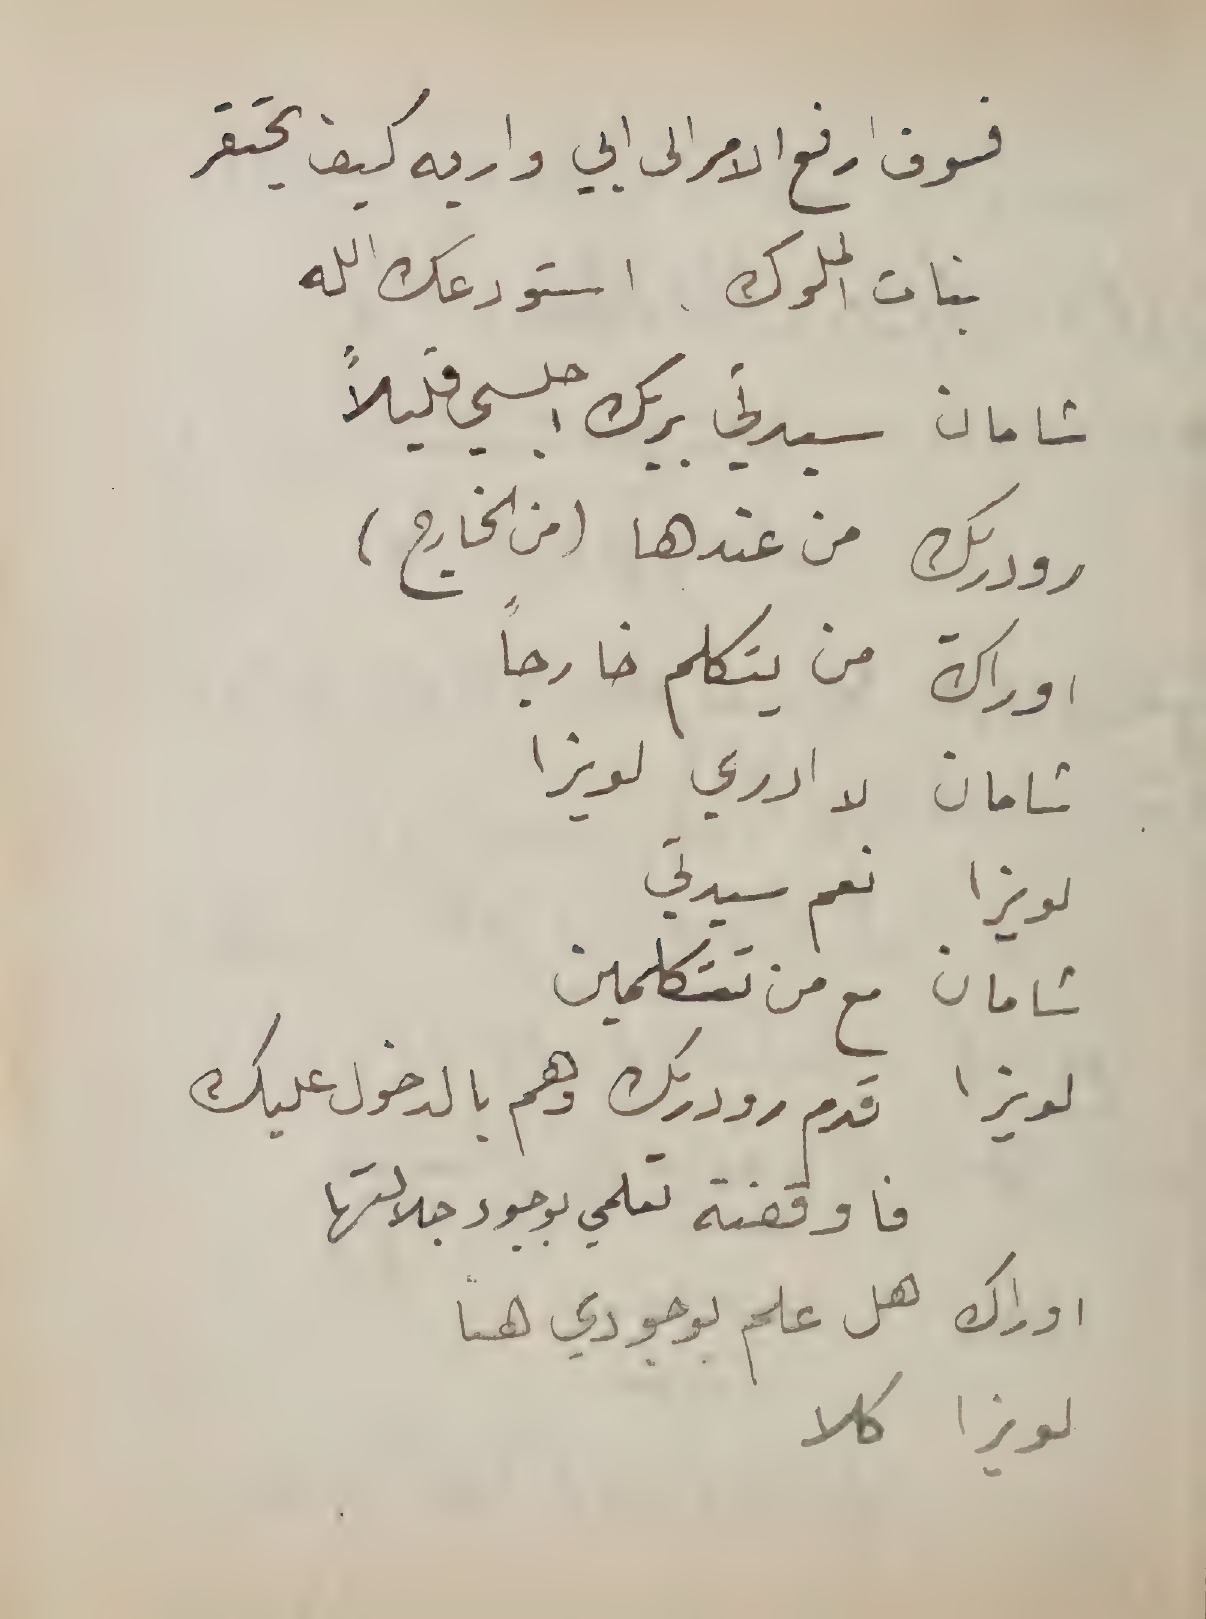 فسوف ارفع الامر الى ابي واريه كيف يحتقر
بنات الملوك . استودعك الله
شامان سيدتي بربك اجلسي قليلاً
رودريك من عندها (من الخارج)
اوراكة من يتكلم خارجاً
شامان لا ادري لويزا
لويزا نعم سيدتي
شامان مع من تتكلمين
لويزا قدم رودريك وهم بالدخول عليك
فاوقفته تعلمي بوجود جلالتها
اوراك هل علم بوجودي هنا
لويزا كلا